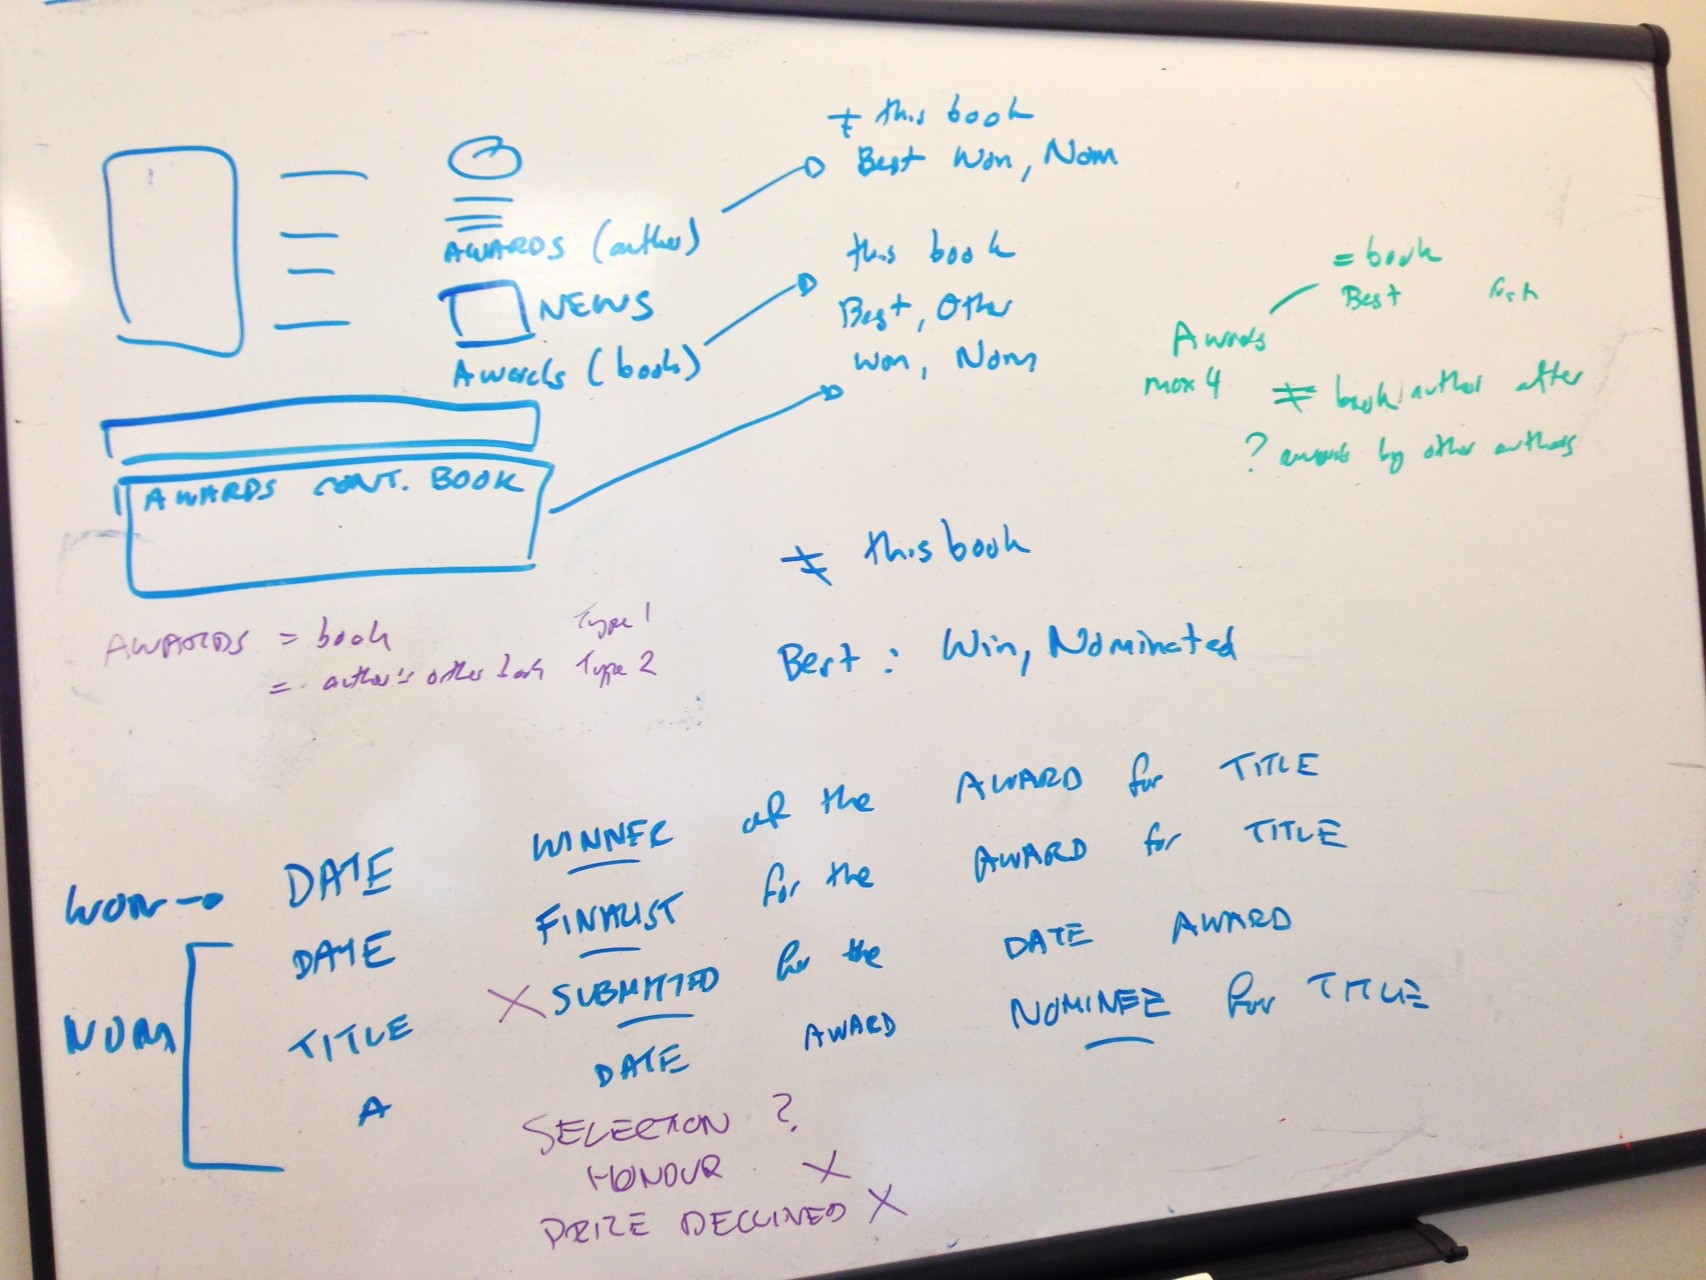 ≠ this book
Best Won, Nom
AWARDS (author)
NEWS
this book
Best, Other
Won, Nom
Awards (book)
AWARDS CONT. BOOK
= book
Best
Awards
max 4
≠ book author after
? awards by other authors
≠ this book
Best : Win, Nominated
AWARDS = book Type 1
= author's other book Type 2
WON → DATE WINNER of the AWARD for TITLE
DATE FINALIST for the AWARD for TITLE
NOM TITLE X SUBMITTED for the DATE AWARD
A DATE AWARD NOMINEE for TITLE
SELECTION ?
HONOUR X
PRIZE DECLINED X